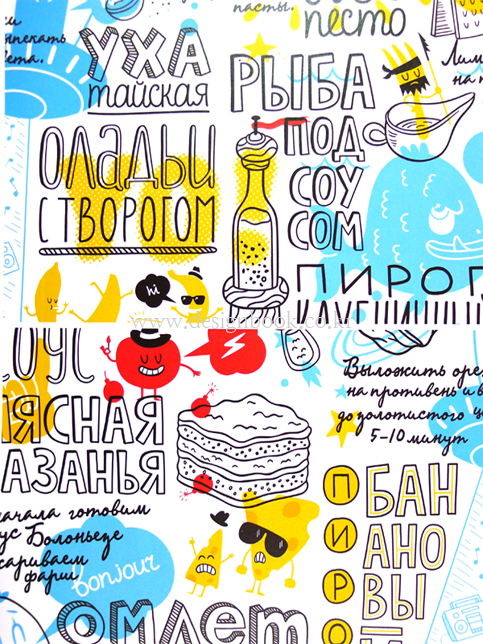 пасты.
песто
ыпекать
вета.
УХА
тайская
РЫБА
ПОД
СОУ
СОМ
Лим
на
ОЛАДЬИ
С ТВОРОГОМ
hi
ПИРОГ
www.designbook.co.kr
ОУС
ЯСНАЯ
АЗАНЬЯ
Выложить оре
на противень и в
до золотистого ц
5-10 минут
ачала готовим
ус Болоньезе
париваем
фарш
bonjour
П
И
Р
О
БАН
АНО
ВЫ
омлет